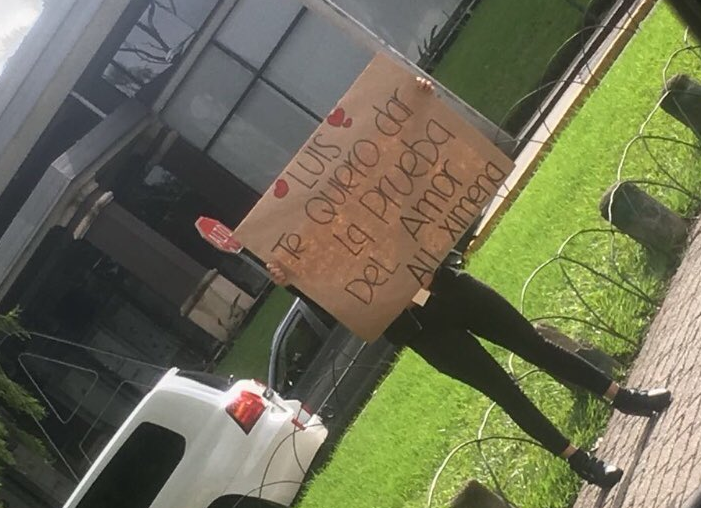 LUIS
Te QUIERO dar
La PRUEBA
DEL AMOR
Att XIMENA